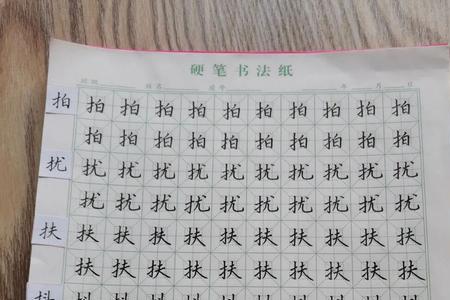 硬笔书法纸
姓名 年 月 日
拍 拍 拍 拍 拍 拍 拍 拍 拍 拍 拍
拍 拍 拍 拍 拍 拍 拍 拍 拍 拍
扰 扰 扰 扰 扰 扰 扰 扰 扰 扰 扰
扰 扰 扰 扰 扰 扰 扰 扰 扰 扰
扶 扶 扶 扶 扶 扶 扶 扶 扶 扶 扶
扶 扶 扶 扶 扶 扶 扶 扶 扶 扶